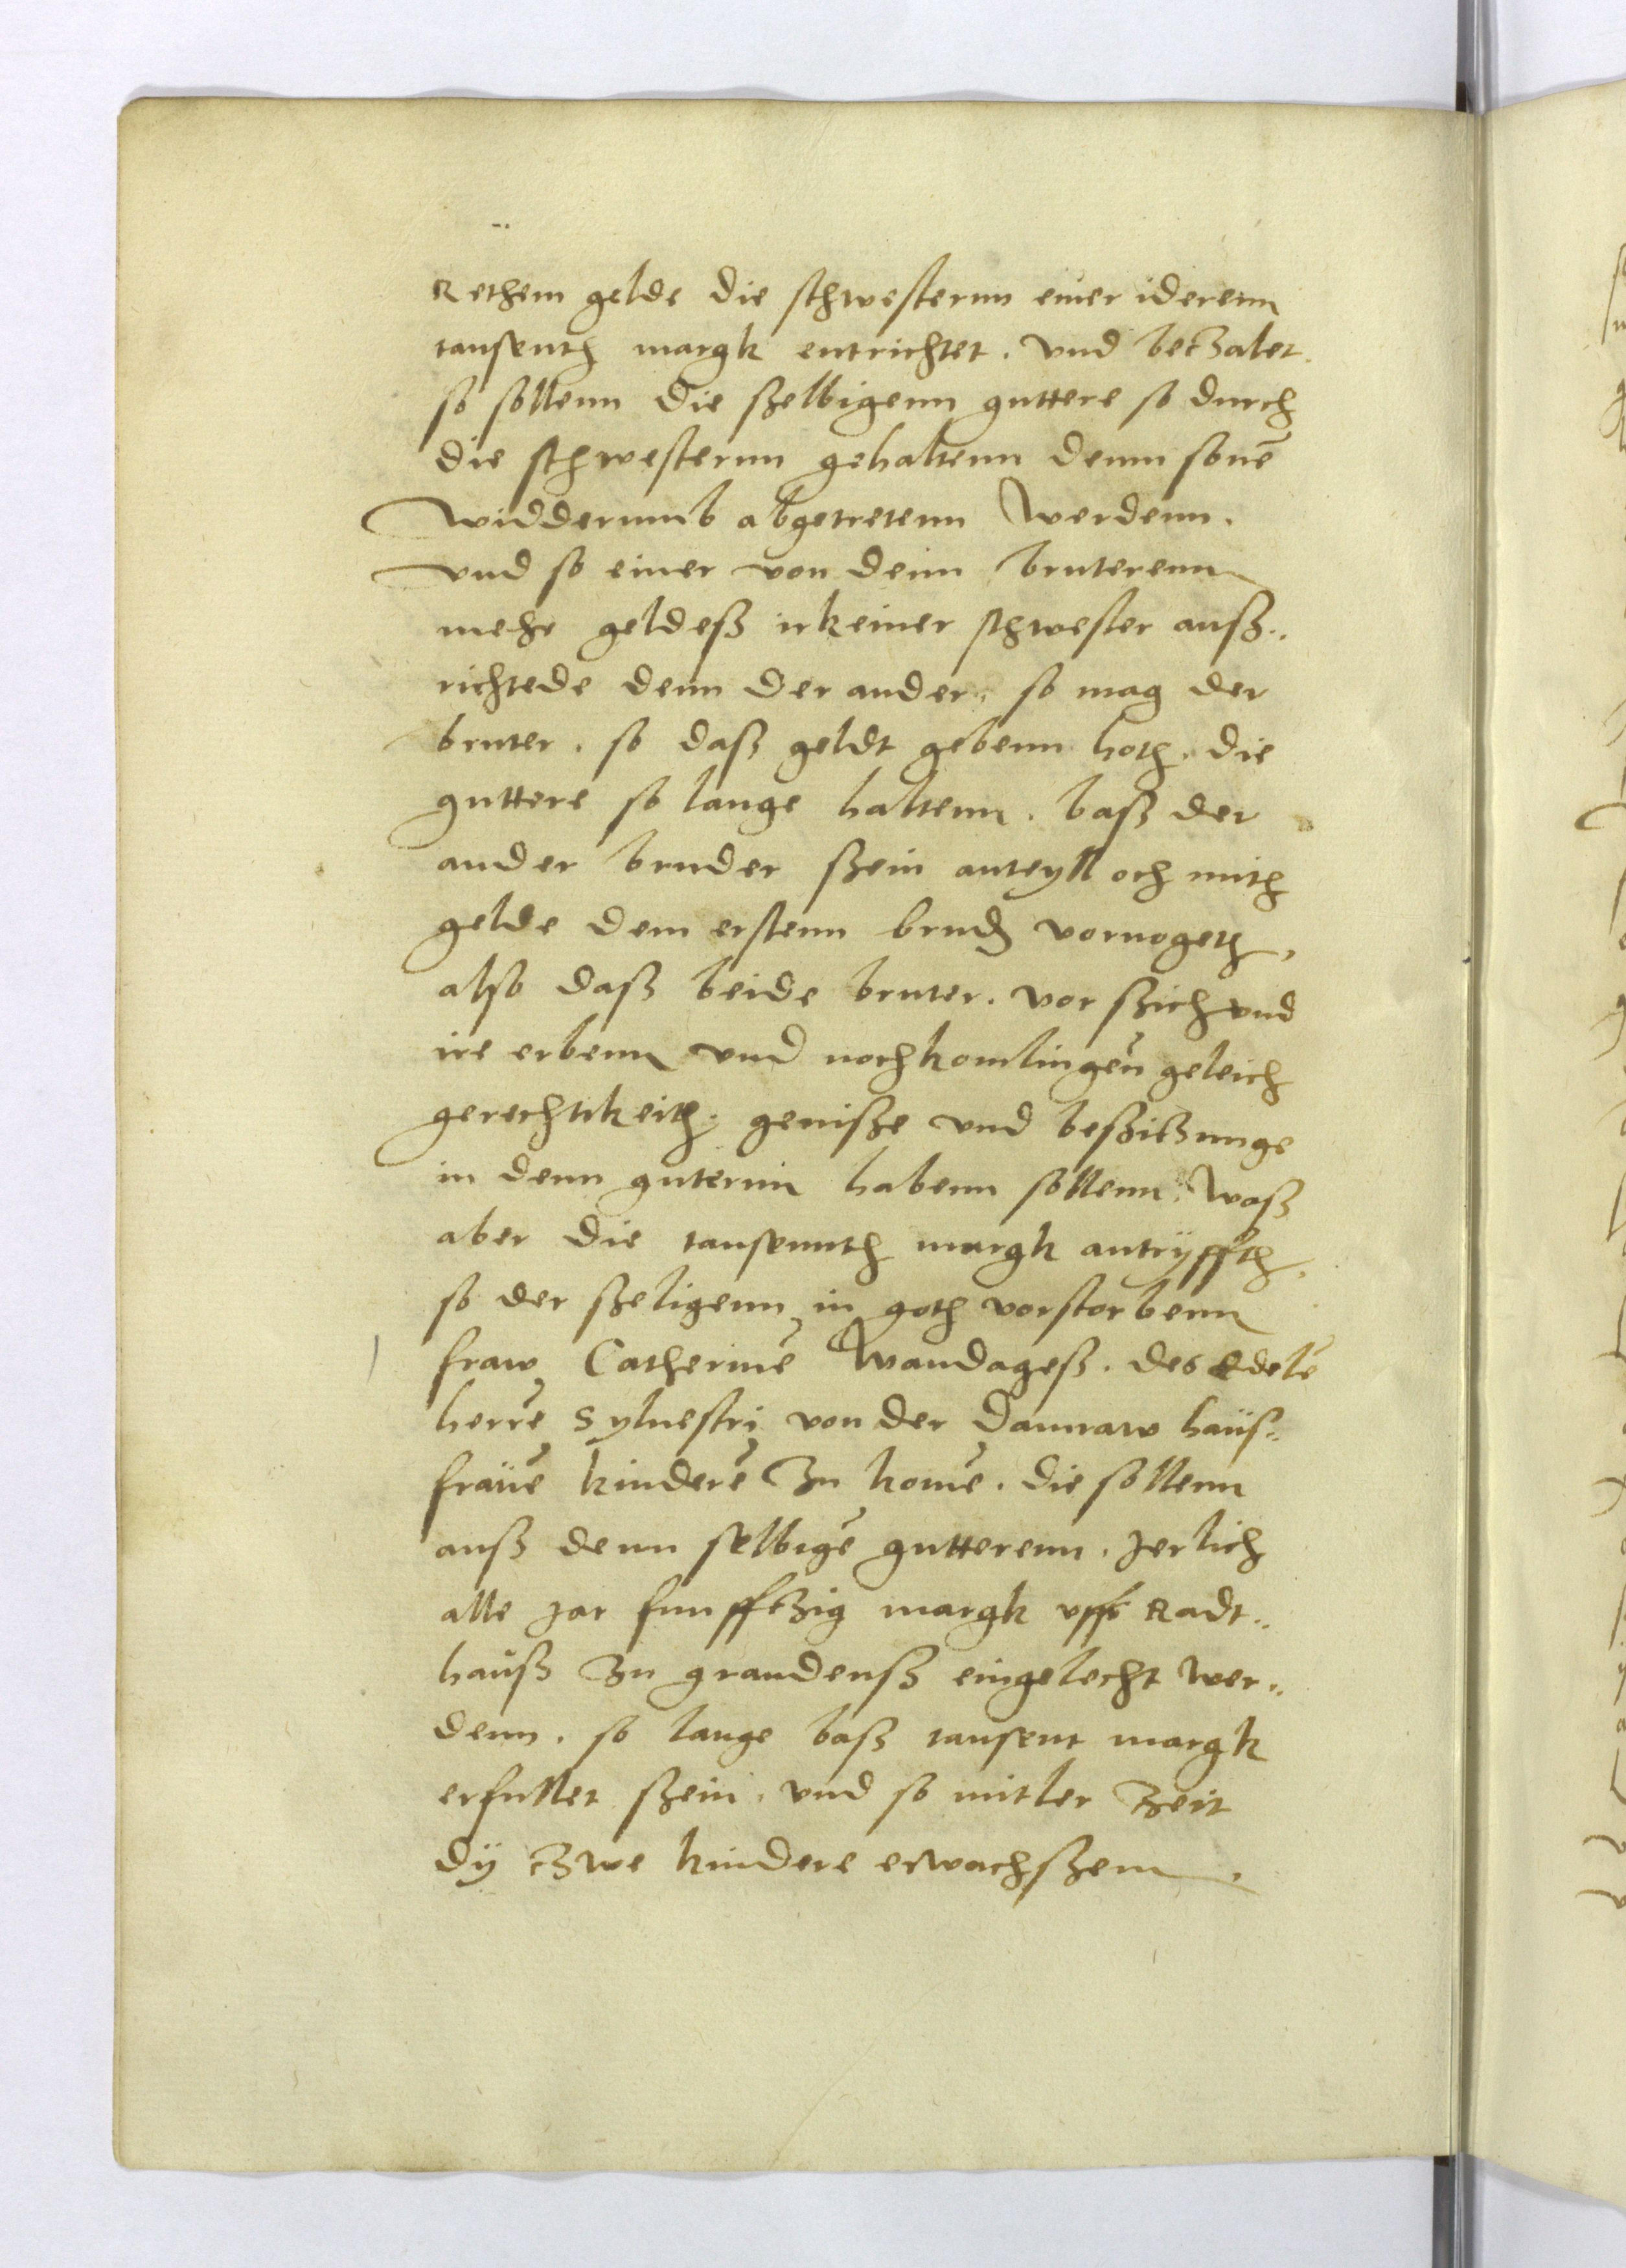 Rethem gelde die schwesternn einer iderenn
tausenth margk entrichtet . vnd betzalet .
so sollenn die szelbigenn guttere so durch
die schwesternn gehaltenn denn sonē
widderumb abgetretenn werdenn .
vnd so einer von denn bruterenn
mehe geldesz irkeiner schwester ausz..
richtede denn der ander . so mag der
bruter . so dasz geldt gebenn hoth . die
guttere so lange haltenn . basz der
ander bruder szein anteyll och mith
gelde dem erstenn brud vornogeth .
also dasz beide bruter . vor szich vnd
ire erbenn vnd nochkomlingen geleich
gerechtikeith . genisze vnd beszitzunge
in denn guternn habenn sollenn . wasz
aber die tausennth margk antryffth .
so der szeligenn in goth vorstorbenn
fraw Catherinē Wandagesz . des Edelē
herrē Syluestri von der Dannaw haüs..
fraüē kinderē zu komē . die sollenn
ausz denn selbigē gutterenn . Jerlich
alle Jar funfftzig margk vffs Radt..
hausz zu graudensz eingelecht wer..
denn . so lange basz tausent margk
erfullet szein . vnd so mitler zeit
dÿ tzwe kindere erwachszenn .